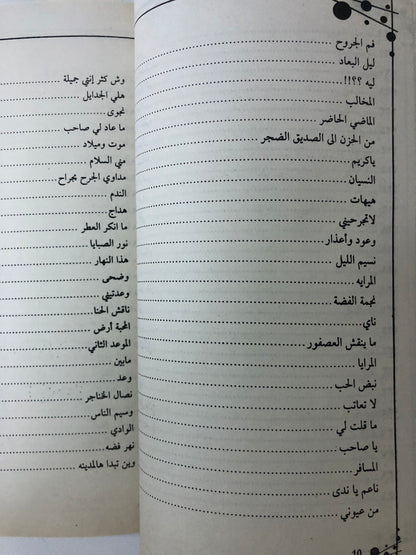 فم الجروح
ليل البعاد
ليه ؟؟!!
المخالب
الماضي الحاضر
من الحزن الى الصديق الضجر
ياكريم
النسيان
هيهات
لاتجرحيني
وعود وأعذار
نسيم الليل
المرايه
نجمة الفضة
ناي
ما ينقش العصفور
المرايا
نبض الحب
لا تعاتب
ما قلت لي
يا صاحب
المسافر
ناعم يا ندى
من عيوني
10
وش كثر إنتي جميلة
هلي الجدايل
نجوى
ما عاد لي صاحب
موت وميلاد
مني السلام
مداوي الجرح بجراح
الندم
هداج
ما انكر العطر
نور الصبايا
هذا النهار
وضحى
وعدتيني
ناقش الحنا
المحبة أرض
الموعد الثاني
مابين
وعد
نصال الخناجر
وسيم الناس
الوادي
نهر فضه
وين تبدا هالمدينه